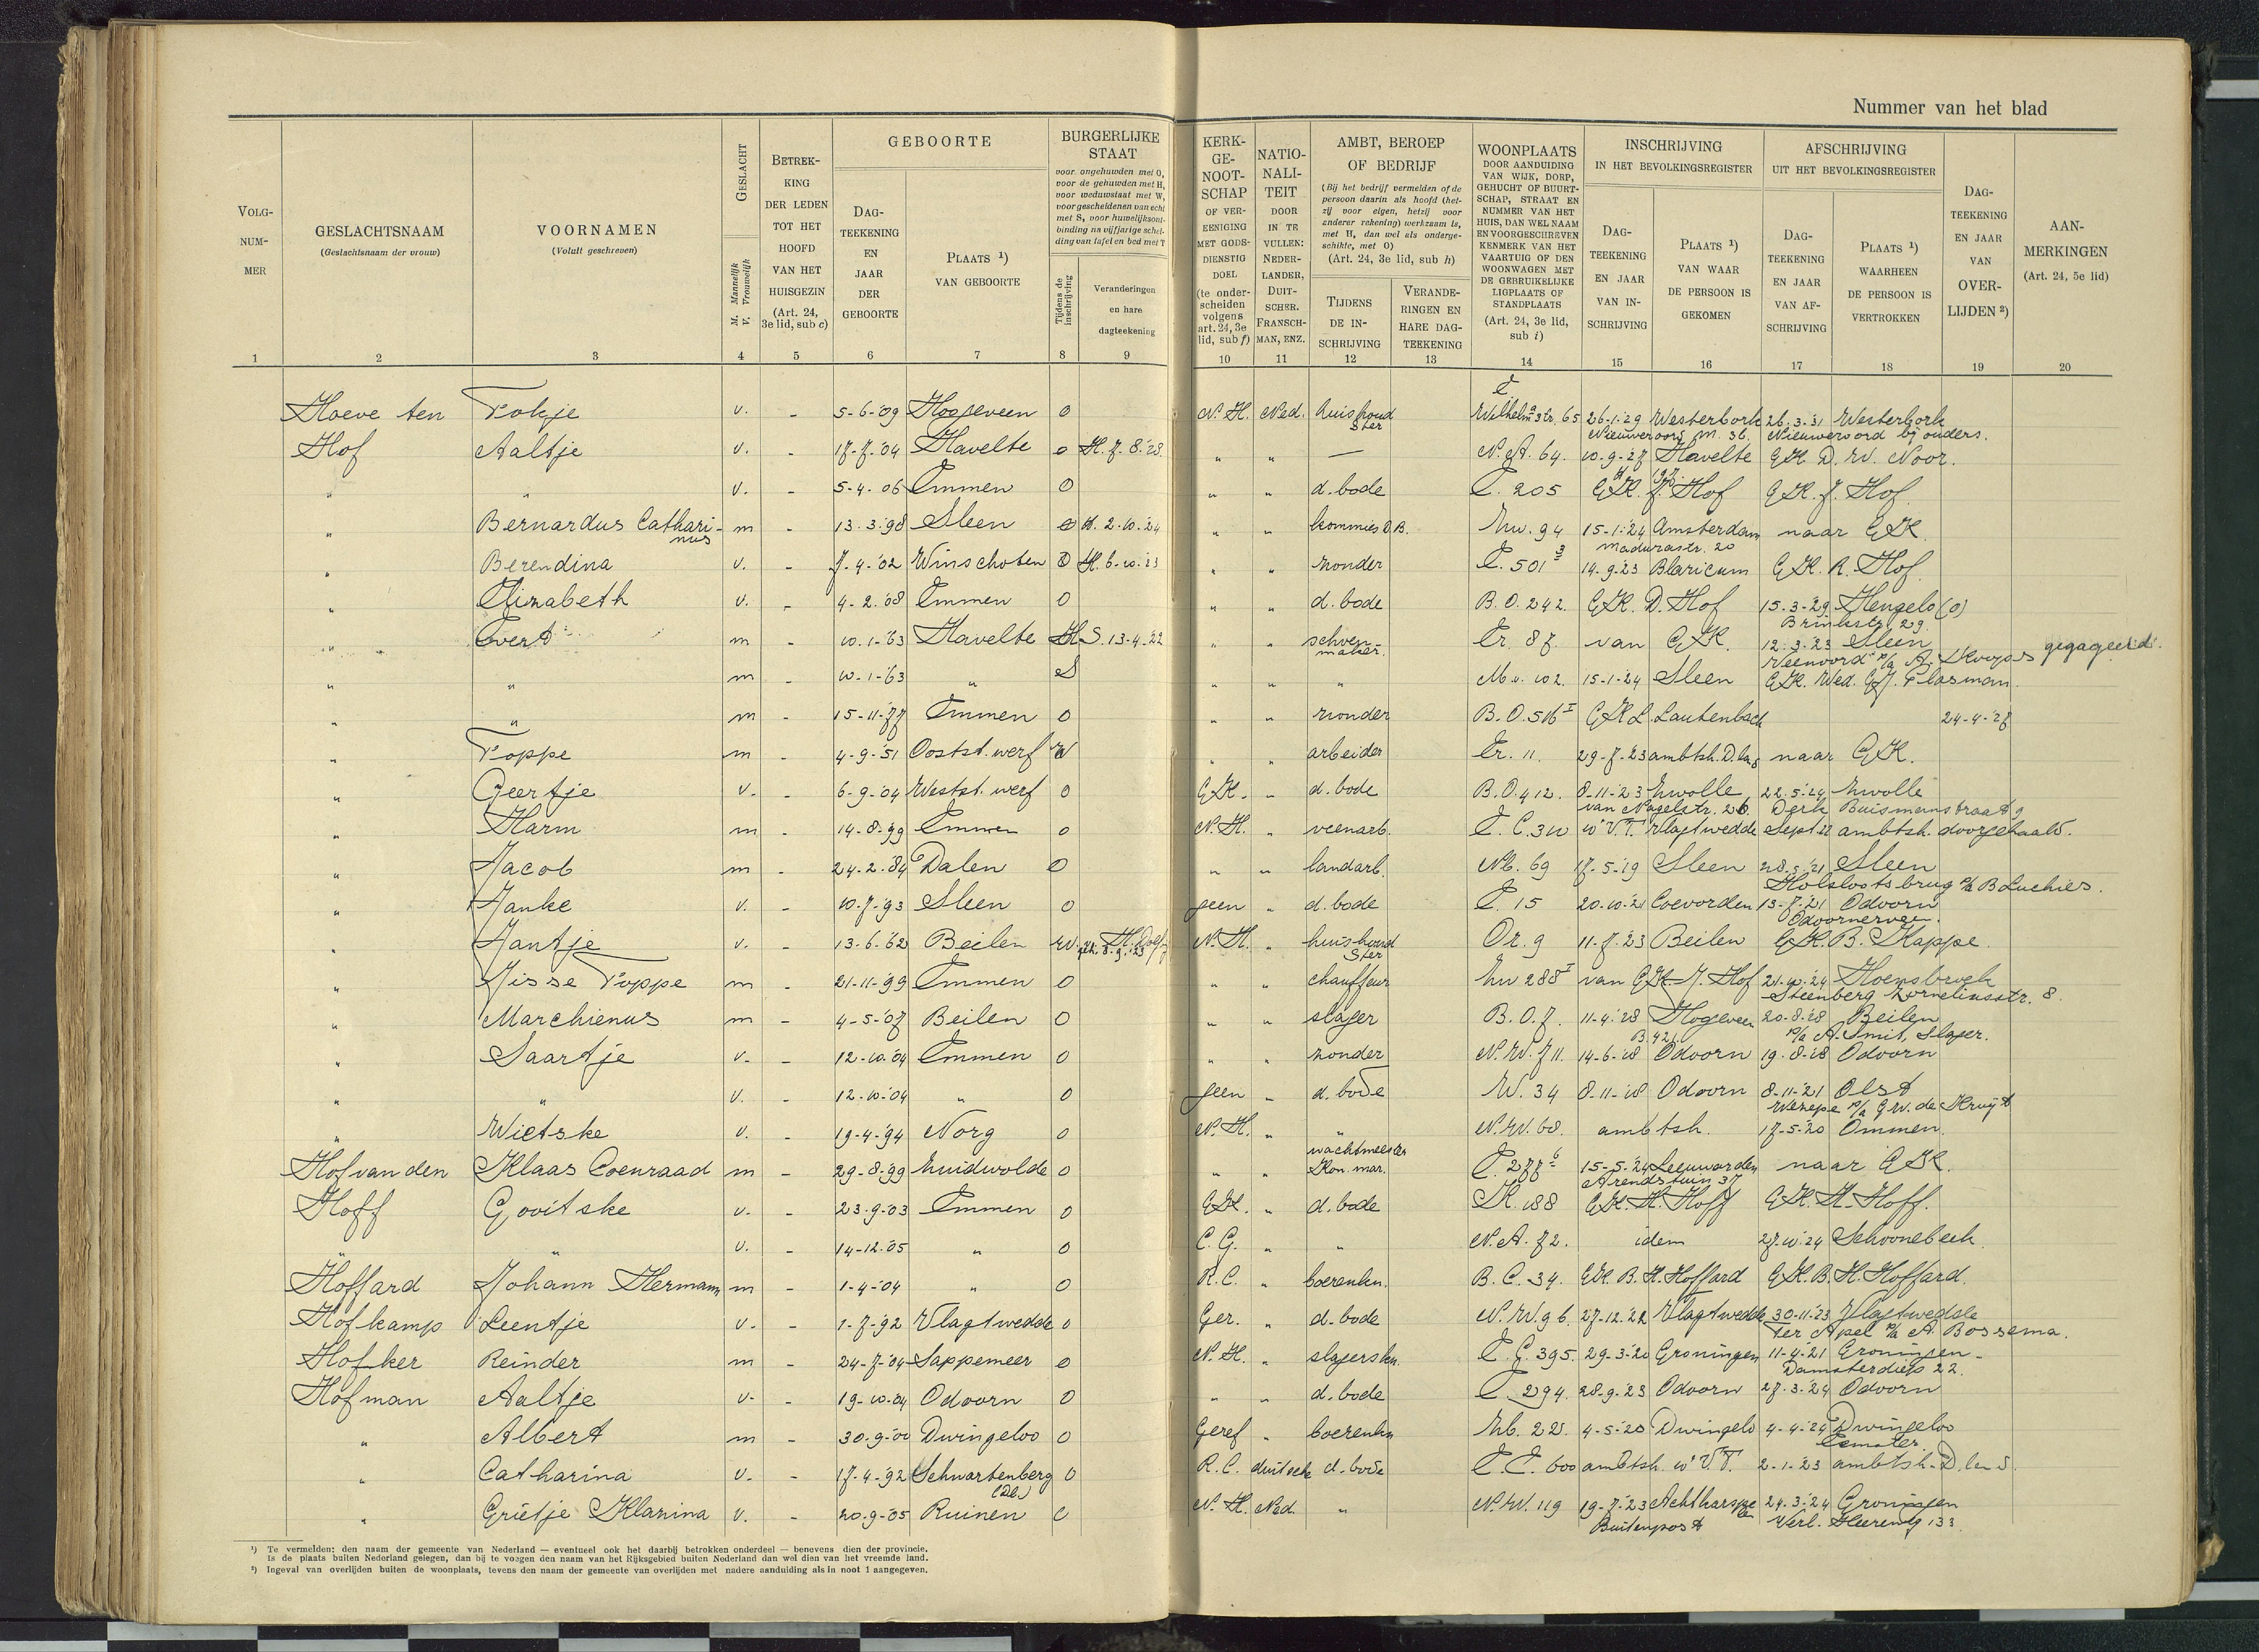 Nummer van het blad
VOLG-NUM-MER
GESLACHTSNAAM (Geslachtsnaam der vrouw)
VOORNAMEN (Voluit geschreven)
GESLACHT M. Mannelijk V. Vrouwelijk
BETREK-KING DER LEDEN TOT HET HOOFD VAN HET HUISGEZIN (Art. 24, 3e lid, sub c)
GEBOORTE
DAG-TEEKENING EN JAAR DER GEBOORTE
PLAATS ¹) VAN GEBOORTE
BURGERLIJKE STAAT
voor ongehuwden met O, voor de gehuwden met H, voor weduwstaat met W, voor gescheidenen van echt met S, voor huwelijksont-binding na vijfjarige schei-ding van tafel en bed met T
Tijdens de inschrijving
Veranderingen en hare dagteekening
KERK-GE-NOOT-SCHAP OF VER-EENIGING MET GODS-DIENSTIG DOEL (te onder-scheiden volgens art. 24, 3e lid, sub f)
NATIO-NALI-TEIT DOOR IN TE VULLEN: NEDER-LANDER, DUIT-SCHER, FRANSCH-MAN, ENZ.
AMBT, BEROEP OF BEDRIJF
(Bij het bedrijf vermelden of de persoon daarin als hoofd (het-zij voor eigen, hetzij voor anderer rekening) werkzaam is, met H, dan wel als onderge-schikte, met O) (Art. 24, 3e lid, sub h)
TIJDENS DE IN-SCHRIJVING
VERANDE-RINGEN EN HARE DAG-TEEKENING
WOONPLAATS DOOR AANDUIDING VAN WIJK, DORP, GEHUCHT OF BUURT-SCHAP, STRAAT EN NUMMER VAN HET HUIS, DAN WEL NAAM EN VOORGESCHREVEN KENMERK VAN HET VAARTUIG OF DEN WOONWAGEN MET DE GEBRUIKELIJKE LIGPLAATS OF STANDPLAATS (Art. 24, 3e lid, sub i)
INSCHRIJVING IN HET BEVOLKINGSREGISTER
DAG-TEEKENING EN JAAR VAN IN-SCHRIJVING
PLAATS ¹) VAN WAAR DE PERSOON IS GEKOMEN
AFSCHRIJVING UIT HET BEVOLKINGSREGISTER
DAG-TEEKENING EN JAAR VAN AF-SCHRIJVING
PLAATS ¹) WAARHEEN DE PERSOON IS VERTROKKEN
DAG-TEEKENING EN JAAR VAN OVER-LIJDEN ²)
AAN-MERKINGEN (Art. 24, 5e lid)
1 2 3 4 5 6 7 8 9 10 11 12 13 14 15 16 17 18 19 20
Hoeve ten Fokje v. - 5-6-'09 Hoogeveen O N.H. Ned. huishoud ster E Wilhelm astr. 65 26-1-29 Westerbork 26-3-31 Westerbork
Nieuweroord M. 36. Nieuweroord bij ouders.
Hof Aaltje v. - 17-7-'04 Havelte O H. 7-8-'28 " " — N.A. 64. 10-9-27 Havelte GK. D. W. Noor.
" " v. - 5-4-06 Emmen O " " d. bode E. 205 GK. J. Hof GK. J. Hof
" Bernardus Cathari-nus m - 13-3-'98 Sleen O H. 2-10-'24 " " kommies D.B. Zuw. 94 15-1-'24 Amsterdam naar GK.
Madurastr. 20
" Berendina v. - 7-4-'02 Winschoten O H. 6-10-'23 " " zonder E. 501 3 14-9-'23 Blaricum GK. R. Hof
" Elizabeth v. - 4-2-'08 Emmen O " " d. bode B.O. 242. GK. D. Hof 15-3-'29 Hengelo (O)
Brinkstr. 29.
" Evert m - 10-1-'63 Havelte H S. 13-4-'22 " " schoen-maker. Er. 87. van GK. 12-3-'23 Sleen
Veenoord p/a A. Koops gegageerd.
" " m - 10-1-'63 " S " " " M.v. 102. 15-1-24 Sleen GK. Wed. G.J. Flasman.
" " m - 15-11-'77 Emmen O " " zonder B.O. 516 I GK L. Lautenbach 24-4-'27
" Foppe m - 4-9-'51 Oostst. werf W " " arbeider Er. 11. 29-7-'23 ambtsh. D. la 8 naar GK.
" Geertje v. - 6-9-'04 Westst. werf O GK. " d. bode B.O. 412. 8-11-'23 Zwolle 22-5-'24 Zwolle
van Nagelstr. 26. Derk Buismanstraat 9
" Harm m - 14-8-'99 Emmen O N.H. " veenarb. E.C. 310 10 V.T. Vlagtwedde Sept 22 ambtsh. doorgehaald.
" Jacob m - 24-2-'84 Dalen O " " landarb. NB. 69 17-5-'19 Sleen 28-5-'21 Sleen
Holslootsbrug p/a B Luchies.
" Janke v. - 10-7-'93 Sleen O geen " d. bode E. 15 20-10-'21 Coevorden 13-7-'21 Odoorn
Odoornerveen.
" Jantje v. - 13-6-'62 Beilen W. N.H. " huishoud ster Or. 9 11-7-'23 Beilen GK. B. Kappe.
" Jisse Foppe m - 21-11-'99 Emmen O " " chauffeur Zuw 288 I van GK J. Hof 21-10-'24 Hoensbroek
Steenberg Kornelinsstr. 8.
" Marchienus m - 4-5-'07 Beilen O " " slager B.O. 7. 11-4-'28 Hogeveen 20-8-'28 Beilen
B. 421. p/a A. Smit, slager.
" Saartje v. - 12-10-'04 Emmen O " " zonder N.W. 711. 14-6-'18 Odoorn 19-8-'18 Odoorn
" " v. 12-10-'04 " O geen " d. bode W. 34 8-11-'18 Odoorn 8-11-'21 Olst
Wezepe p/a G.W. de Kruijt
" Wietske v. - 19-4-'94 Norg O N.H. " " N.W. 68. ambtsh. 17-5-'20 Ommen.
Hof van den Klaas Coenraad m - 29-8-'99 Zuidwolde O " " wachtmeester Kon. mar. E. 277 6 15-5-'24 Leeuwarden naar GK.
Arendstuin 37
Hoff Gooitske v. - 23-9-'03 Emmen O GK. " d. bode K. 188 GK. H. Hoff GK. H. Hoff.
" " v. 14-12-'05 " O C.G. " " N.A. 72. idem 27-10-'24 Schoonebeek.
Hoffard Johann Hermann m - 1-4-'04 " O R.C. " boerenkn. B.C. 34. GK. B.H. Hoffard GK. B.H. Hoffard.
Hofkamp Leentje v. - 1-7-'92 Vlagtwedde O Ger. " d. bode N.W. 96. 27-12-'22 Vlagtwedde 30-11-'23 Vlagtwedde
Ter Apel p/a A. Bossema.
Hofker Reinder m - 24-7-'04 Sappemeer O N.H. " slagerskn. E.G. 395. 29-3-'20 Groningen 11-4-'21 Groningen
Damsterdiep 22.
Hofman Aaltje v. - 19-10-'04 Odoorn O " " d. bode E. 294. 28-9-'23 Odoorn 27-3-'24 Odoorn
" Albert m - 30-9-'00 Dwingeloo O Geref " boerenkn Nb. 22. 4-5-'20 Dwingelo 4-4-'24 Dwingeloo
Eemster.
" Catharina v. - 17-4-'92 Schwartenberg O R.C. duitsch d. bode E.E. 600 ambtsh. 10 V.T. 2-1-'23 ambtsh. D.
" Grietje Klazina v. - 20-9-'05 Ruinen O N.H. Ned. " N.W. 119 19-7-'23 Achtkarspelen 24-3-'24 Groningen
Buitenpost Verl. Heerenweg 133
¹) Te vermelden: den naam der gemeente van Nederland — eventueel ook het daarbij betrokken onderdeel — benevens dien der provincie.
Is de plaats buiten Nederland gelegen, dan bij te voegen den naam van het Rijksgebied buiten Nederland dan wel dien van het vreemde land.
²) Ingeval van overlijden buiten de woonplaats, tevens den naam der gemeente van overlijden met nadere aanduiding als in noot 1 aangegeven.